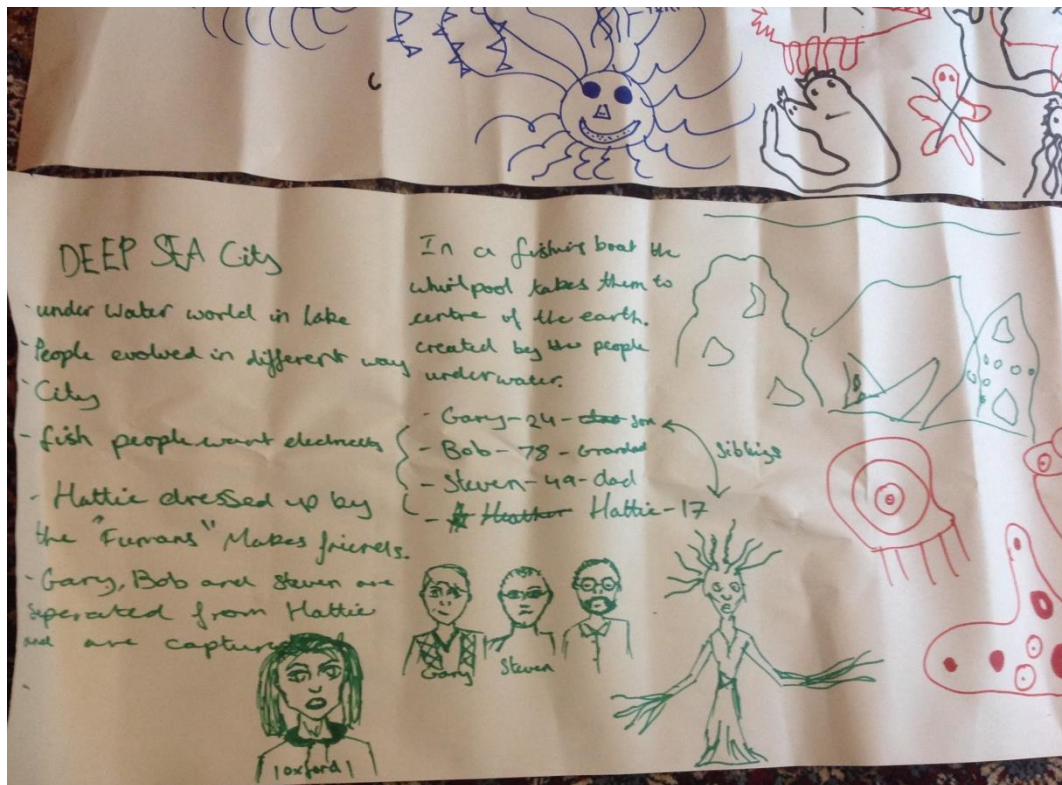 DEEP SEA City
- under water world in Lake
- People evolved in different way
- City
- fish people want electricity
- Hattie dressed up by
the "Fumans" Makes friends.
- Gary, Bob and Steven are
seperated from Hattie
and are captur
In a fishing boat the
whirlpool takes them to
centre of the earth.
created by the people
underwater.
- Gary - 24 - son
- Bob - 78 - Grandad
- Steven - 49 - dad
- Heather Hattie - 17
Siblings
Gary
Steven
oxford